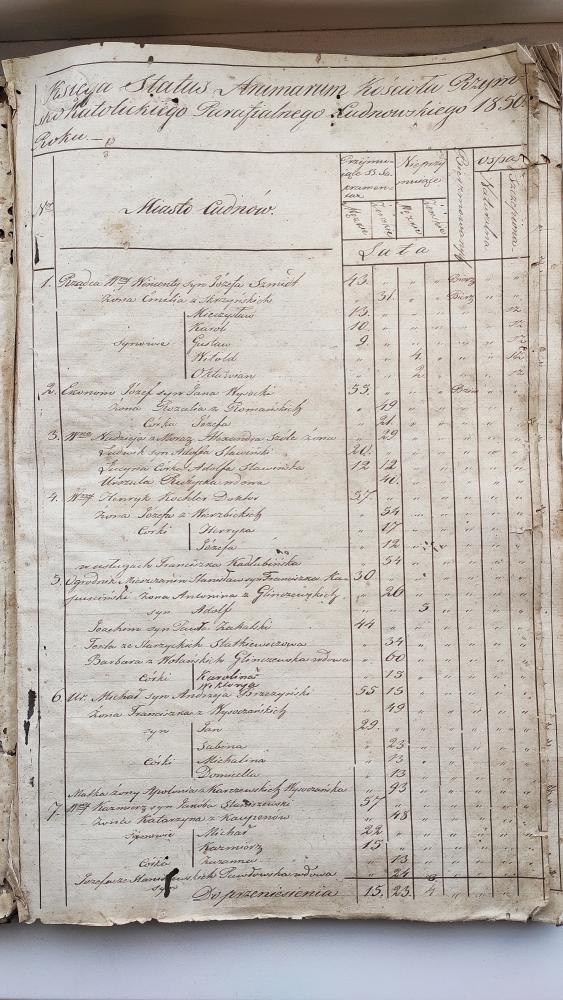 Księga Status Animarum Kościoła Rzym
sko Katolickiego Parafialnego Cudnowskiego 1850
Roku. —
Nro
Miasto Cudnów.
Przyjmu-
iące SS. Sa
kramen-
ta
Nieprzy
muiące
Bierzmowanych
ospa
Męzkie
Żeńskie
Męzkie
Żeńskie
Naturalna
Szczepiona
Lata
1. Rządca Wny Wincenty syn Józefa Szmidt 43. " " " Bierz " "
żona Emilia z Skrzyńskich " 31. " " Bierz " "
Mieczysław 13. " " " " "
Karol 10. " " " " "
synowie Gustaw 9. " " " " "
Witold " " 4. " " "
Oktawian " " 2. " " "
2. Ekonom Józef syn Jana Wysocki 55. " " "
żona Rozalia z Romańskich " 49
Córka Józefa " 21.
3. Alexandra żona " 29
Ludwik syn Adolfa Sławiński 20.
Lucyna Córka Adolfa Sławińska 12 12
Urszula Różycka wdowa " 40.
4. Wny Henryk Kochler Doktor 57. "
żona Józefa z Wierzbickich " 54
Córki Henryka " 17
Józefa " 12
w usługach Franciszka Kadłubińska " 54
5. Ogrodnik Mieszczanin Stanisław syn Franciszka Ka- 30.
puściński żona Antonina z Glinczewskich " 26
syn Adolf " " 5
Joachim syn Pawła Zakalski 44 "
Tekla ze Starzyckich Statkiewiczowa " 34
Barbara z Wolańskich Glinczewska wdowa " 60
Córki Karolina " 15
Wiktorya
6. Ur. Michał syn Andrzeja Brzezyński 55 15
żona Franciszka z Wysoczańskich " 49
syn Jan 29. "
Sabina " 23
Córki Michalina " 13
Domicella " 13
Matka żony Apolonia z Karczewskich Wysoczańska " 93
7. Wny Kazimierz syn Jakóba Staniszewski 57 "
żona Katarzyna z Kaupenów " 48
synowie Michał 22 "
Kazimierz 15 "
Córka Zuzanna " 13
Józefa ze Staniszewskich Pawłowska wdowa " 24
syn
Do przeniesienia 15. 23. 4